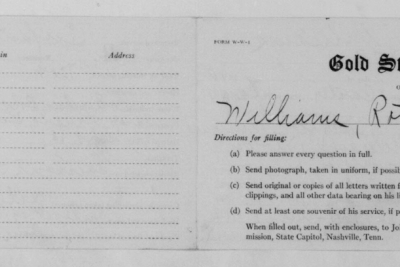 in
Address
FORM W-W-1
Gold S
Williams, Ro
Directions for filling:
(a) Please answer every question in full.
(b) Send photograph, taken in uniform, if possib
(c) Send original or copies of all letters written f
clippings, and all other data bearing on his li
(d) Send at least one souvenir of his service, if p
When filled out, send, with enclosures, to Jo
mission, State Capitol, Nashville, Tenn.